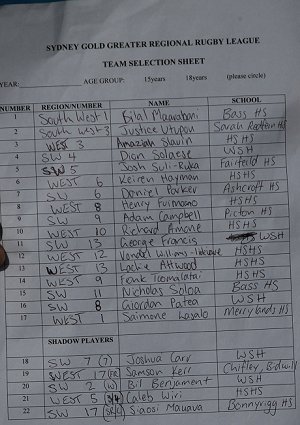 SYDNEY GOLD GREATER REGIONAL RUGBY LEAGUE
TEAM SELECTION SHEET
YEAR: AGE GROUP: 15years 18years (please circle)
NUMBER REGION/NUMBER NAME SCHOOL
1 South West 1 Bilal Maarabani Bass HS
2 South West 3 Justice Utupou Sarah Redfern HS
3 WEST 3 Amaziah Slavin HSHS
4 SW 4 Dion Solaese WSH
5 SW 5 Josh Suli-Ruka Fairfeild HS
6 WEST 6 Keiren Hayman HSHS
7 SW 6 Daniel Parker Ashcroft HS
8 WEST 8 Henry Fuimaono HSHS
9 SW 9 Adam Campbell Picton HS
10 WEST 10 Richard Amone HSHS
11 SW 13 George Francis WSH
12 WEST 12 Vandel Williams HSHS
13 WEST 13 Lachie Attwood HSHS
14 WEST 9 Fenk HSHS
15 SW 11 Nicholas Soloa Bass HS
16 SW 8 Giordan Patea WSH
17 WEST 1 Saimone Lasalo Merrylands HS
SHADOW PLAYERS
18 SW 7 (7) Joshua Carr WSH
19 WEST 17 (FR) Samson Kerr Chifley, Bidwill
20 SW 2 (W) Bill Benjament WSH
21 WEST 5 3/4 Caleb Wiri HSHS
22 SW 17 Siaosi Mauava Bonnyrigg HS